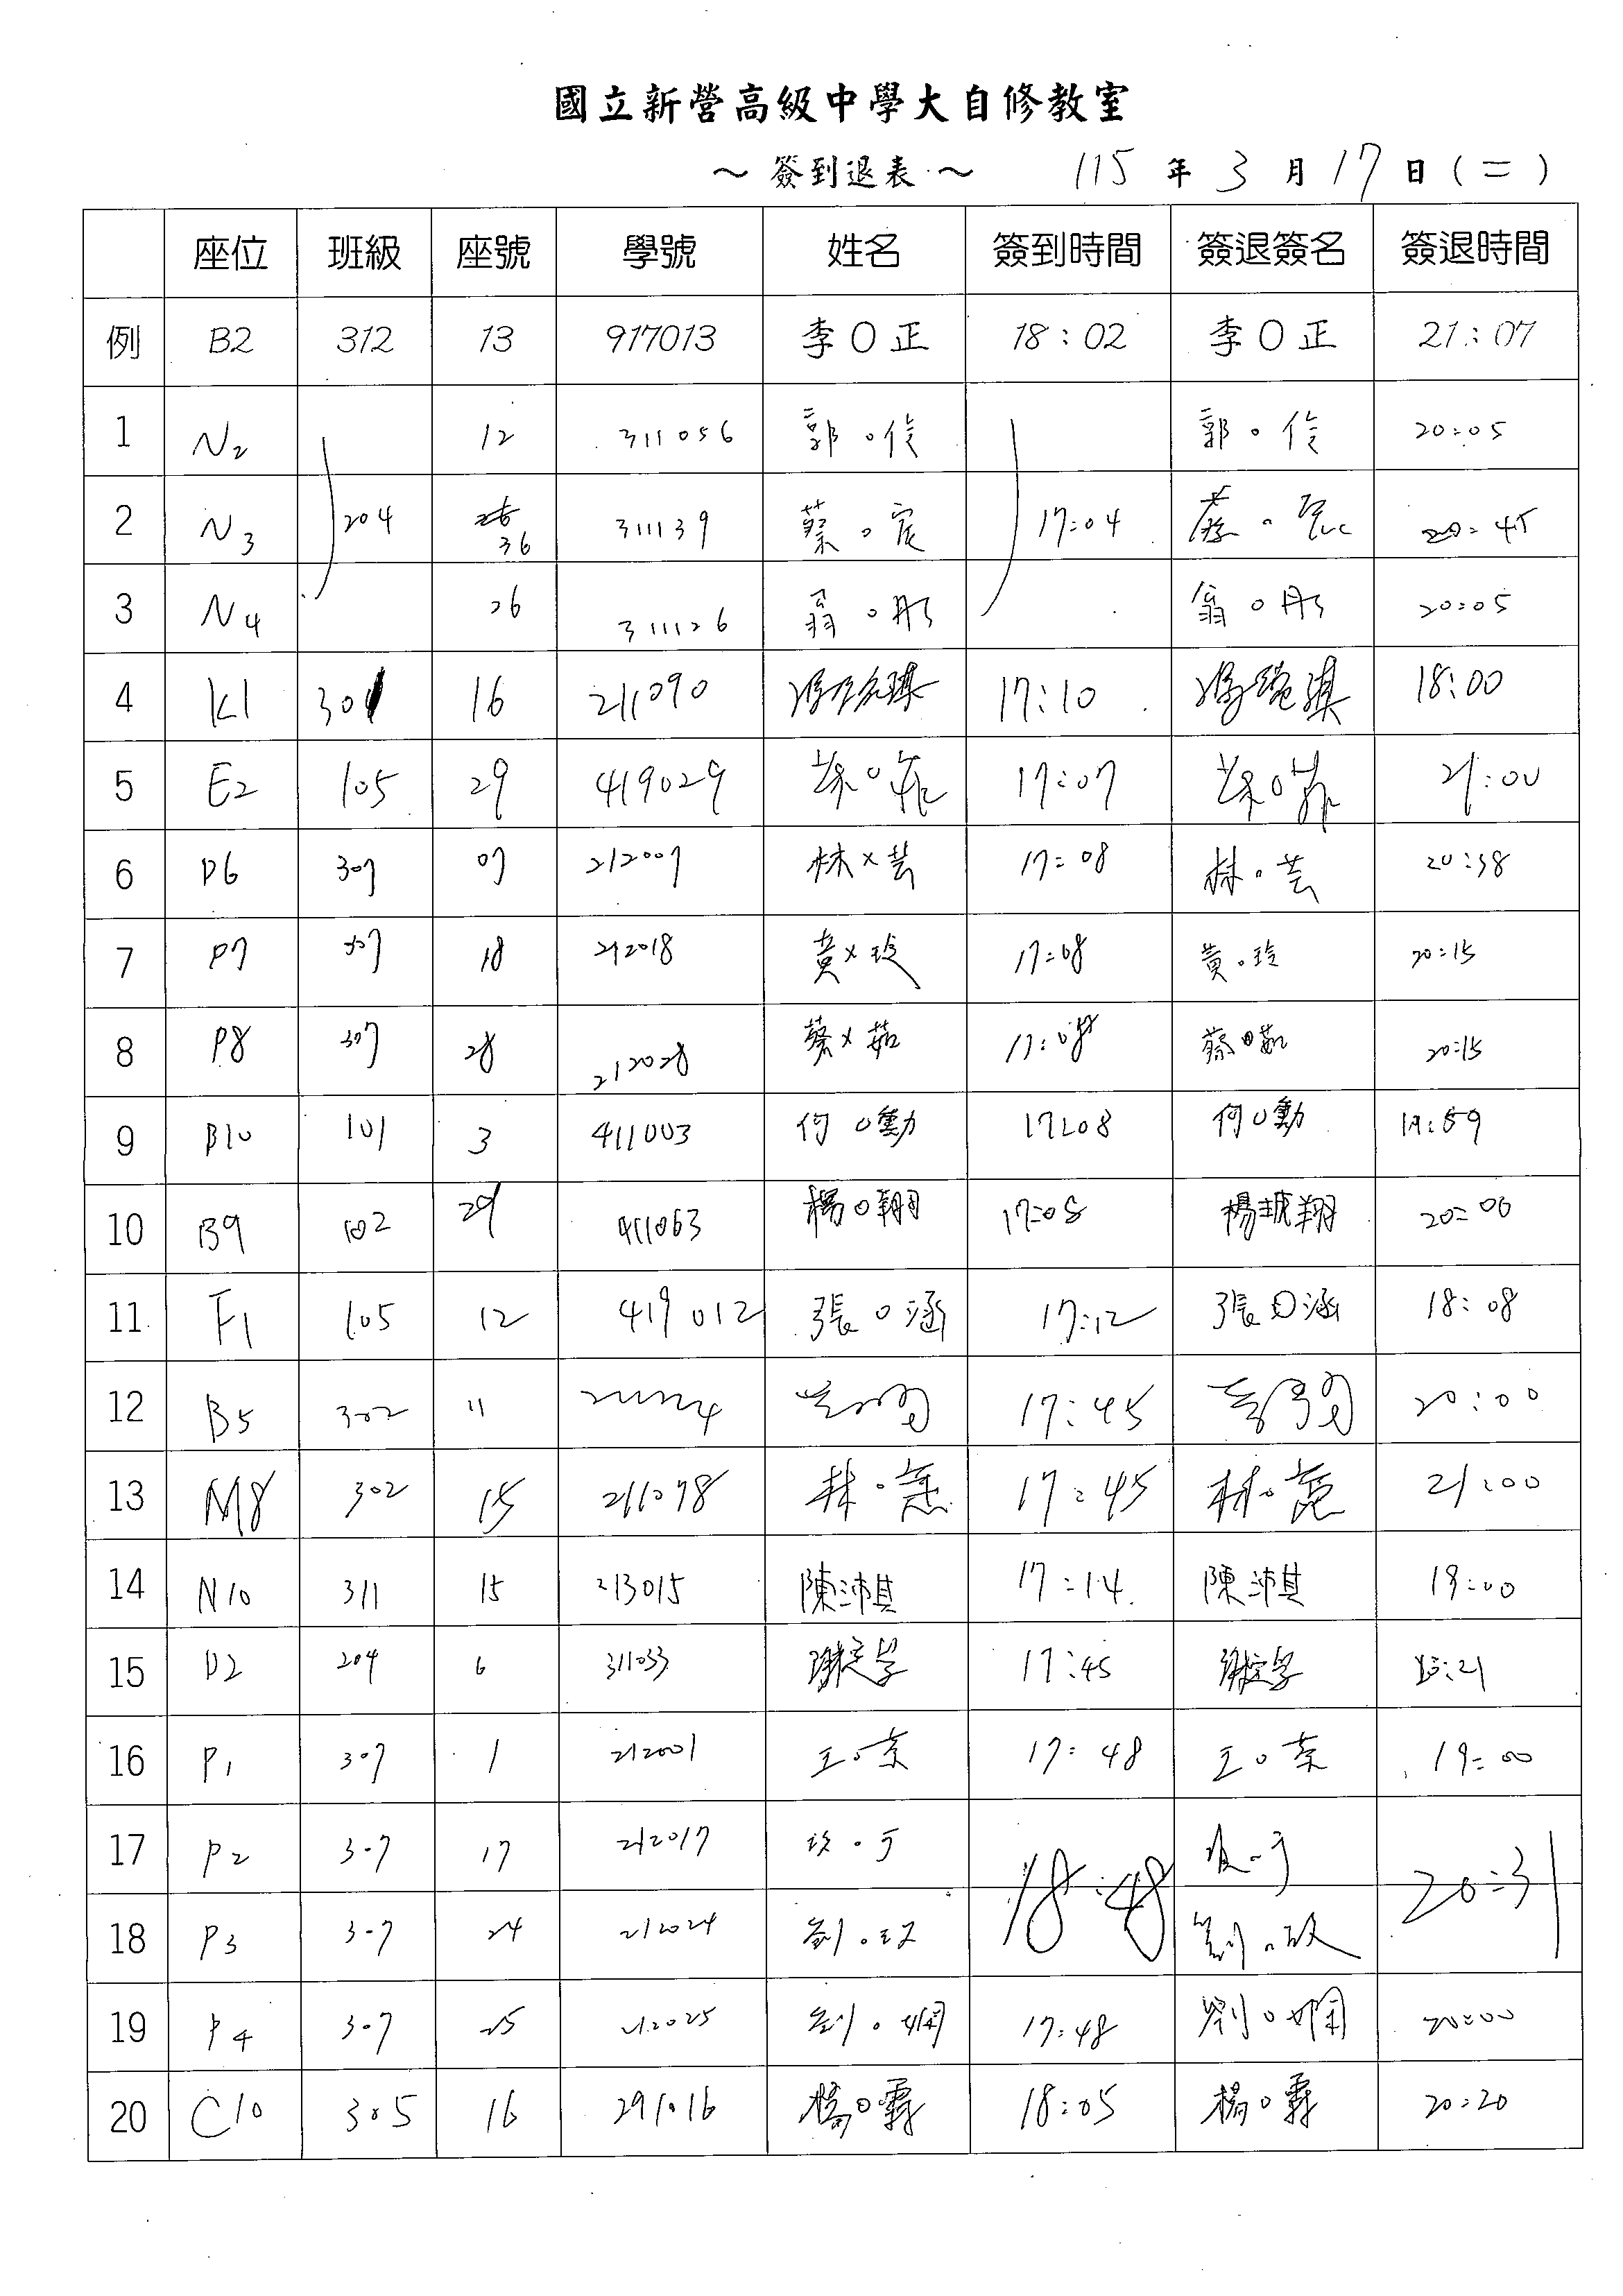 國立新營高級中學大自修教室
～簽到退表～ 115 年 3 月 17 日 (二)
座位 班級 座號 學號 姓名 簽到時間 簽退簽名 簽退時間
例 B2 312 13 917013 李O正 18:02 李O正 21:07
1 N2 12 311056 郭o俊 郭o俊 20:05
2 N3 204 36 311139 蔡o宸 17:04 20:45
3 N4 26 311126 翁o彤 翁o彤 20:05
4 K1 301 16 211090 17:10 18:00
5 E2 105 29 419029 17:07 21:00
6 P6 307 07 212007 林x芸 17:08 林o芸 20:38
7 P7 307 18 212018 黃x玲 17:08 黃o玲 20:15
8 P8 307 28 212028 蔡x茹 17:08 蔡 20:15
9 B10 101 3 411003 何O勳 17:08 何O勳 19:59
10 B9 102 29 411063 楊O翔 17:08 楊琥翔 20:00
11 F1 105 12 419012 張O涵 17:12 張O涵 18:08
12 B5 302 11 17:45 20:00
13 M8 302 15 211078 林o 17:45 林o 21:00
14 N10 311 15 213015 陳沛淇 17:14 陳沛淇 19:00
15 P2 204 6 311033 17:45 :21
16 P1 307 1 212001 王o 17:48 王o 19:00
17 P2 307 17 212017 18:48 20:31
18 P3 307 24 212024 劉o玟 劉o玟
19 P4 307 25 212025 劉o嫻 17:48 劉o嫻 20:00
20 C10 305 16 291016 楊O霖 18:05 楊O霖 20:20